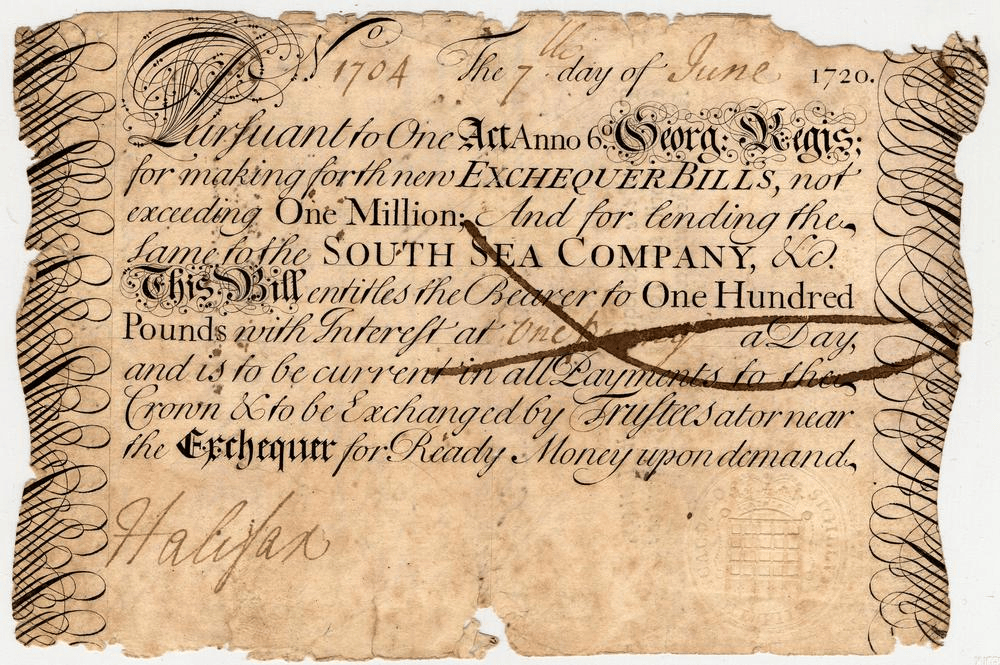 No 1704 The 7th day of June 1720.
Pursuant to One Act Anno 6o. Georg: Regis;
for making forth new EXCHEQUER BILLS, not
exceeding One Million; And for lending the
same to the SOUTH SEA COMPANY, &c.
This Bill entitles the Bearer to One Hundred
Pounds with Interest at One penny a Day,
and is to be current in all Payments to the
Crown & to be Exchanged by Trustees at or near
the Exchequer for Ready Money upon demand.
Halifax